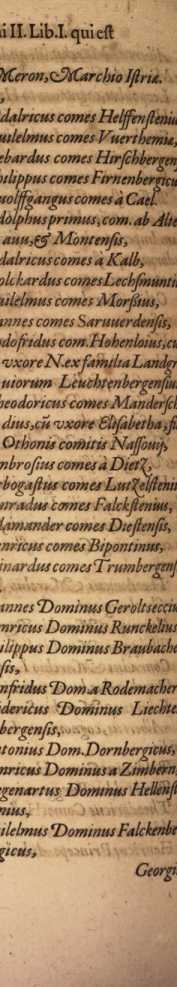 ni II. Lib. I. qui est
Meron, Marchio Istriæ.
dalricus comes Helffensteniu
uilelmus comes Vuerthemiæ,
ebardus comes Hirschbergen
ilippus comes Firnenbergicu
uolffgangus comes à Cael
dolphus primus, com. ab Alte
auu, & Montensis,
dalricus comes à Kalb,
olckardus comes Lechsmunti
uilelmus comes Morsius,
annes comes Saruuerdensis,
odofridus com. Hohenloius, cu
vxore N. ex familia Landgr
uiorum Leuchtenbergensiu
heodoricus comes Mandersch
dius, cũ vxore Elisabetha, fi
Othonis comitis Nassouij,
mbrosius comes à Dietz,
rbogastus comes Lutzelsteniu
nradus comes Falckstenius,
damander comes Diestensis,
nricus comes Bipontinus,
inardus comes Trumbergens
annes Dominus Geroltseccius
nricus Dominus Runckelius
ilippus Dominus Braubache
sis,
nfridus Dom. a Rodemacher
idericus Dominus Liechte
bergensis,
tonius Dom. Dornbergicus,
nricus Dominus a Zimbern,
egenartus Dominus Hellenst
nius,
uilelmus Dominus Falckenbe
gicus,
Georgi